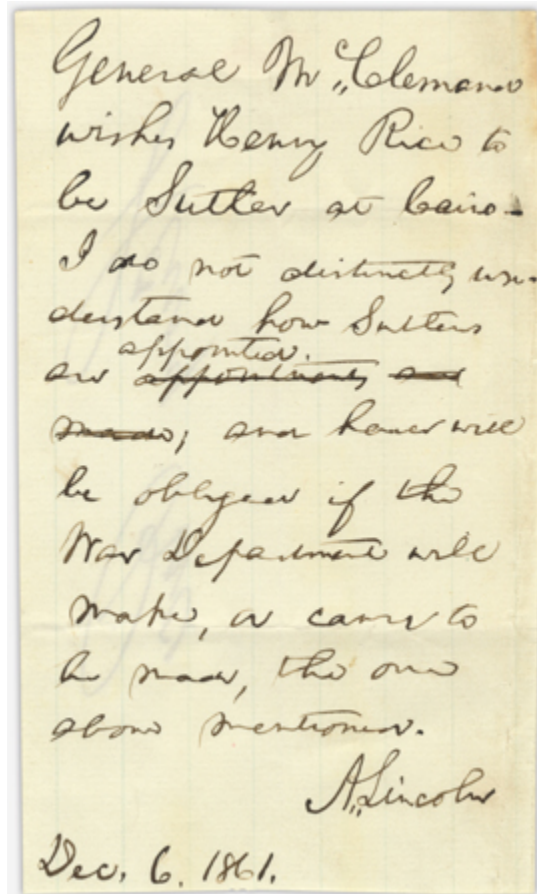 General McClernand
wishes Henry Rice to
be Sutler at Cairo—
I do not distinctly un-
derstand how Sutlers
appointed.
are appointments are
made; and hence will
be obliged if the
War Department will
make, or cause to
be made, the one
above mentioned.
A. Lincoln
Dec. 6. 1861.